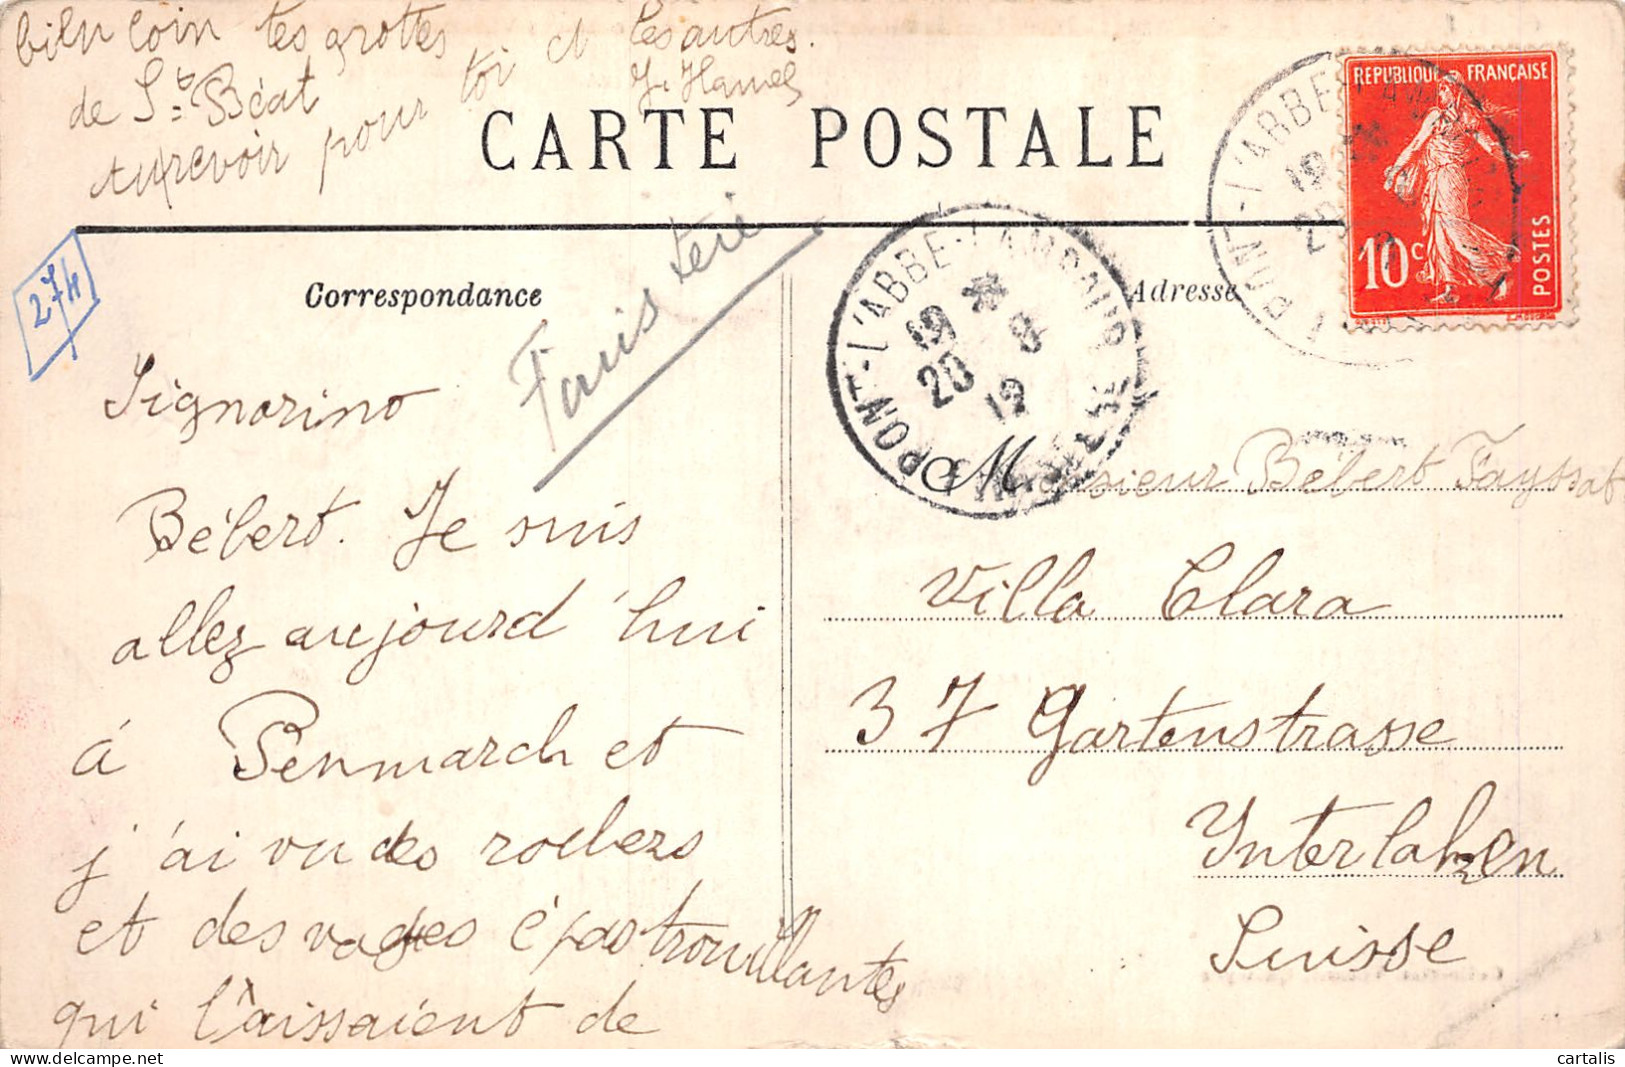 bien loin les grottes
de St Béat
Aurevoir pour toi et les autres.
Y. Hamel
CARTE POSTALE
REPUBLIQUE FRANÇAISE
10c
POSTES
PONT-L'ABBE
19
20
274
Correspondance
Finistère
PONT-L'ABBE-LAMBOUR
FINISTERE
19 * 8
20 12
Adresse
Signorino
Bébert. Je suis
allez aujourd'hui
à Penmarch et
j'ai vu des rochers
et des vagues épastrouillantes
qui l'aissaient de
Monsieur Bébert Fayssat
Villa Clara
37 Gartenstrasse
Interlaken
Suisse
cartalis